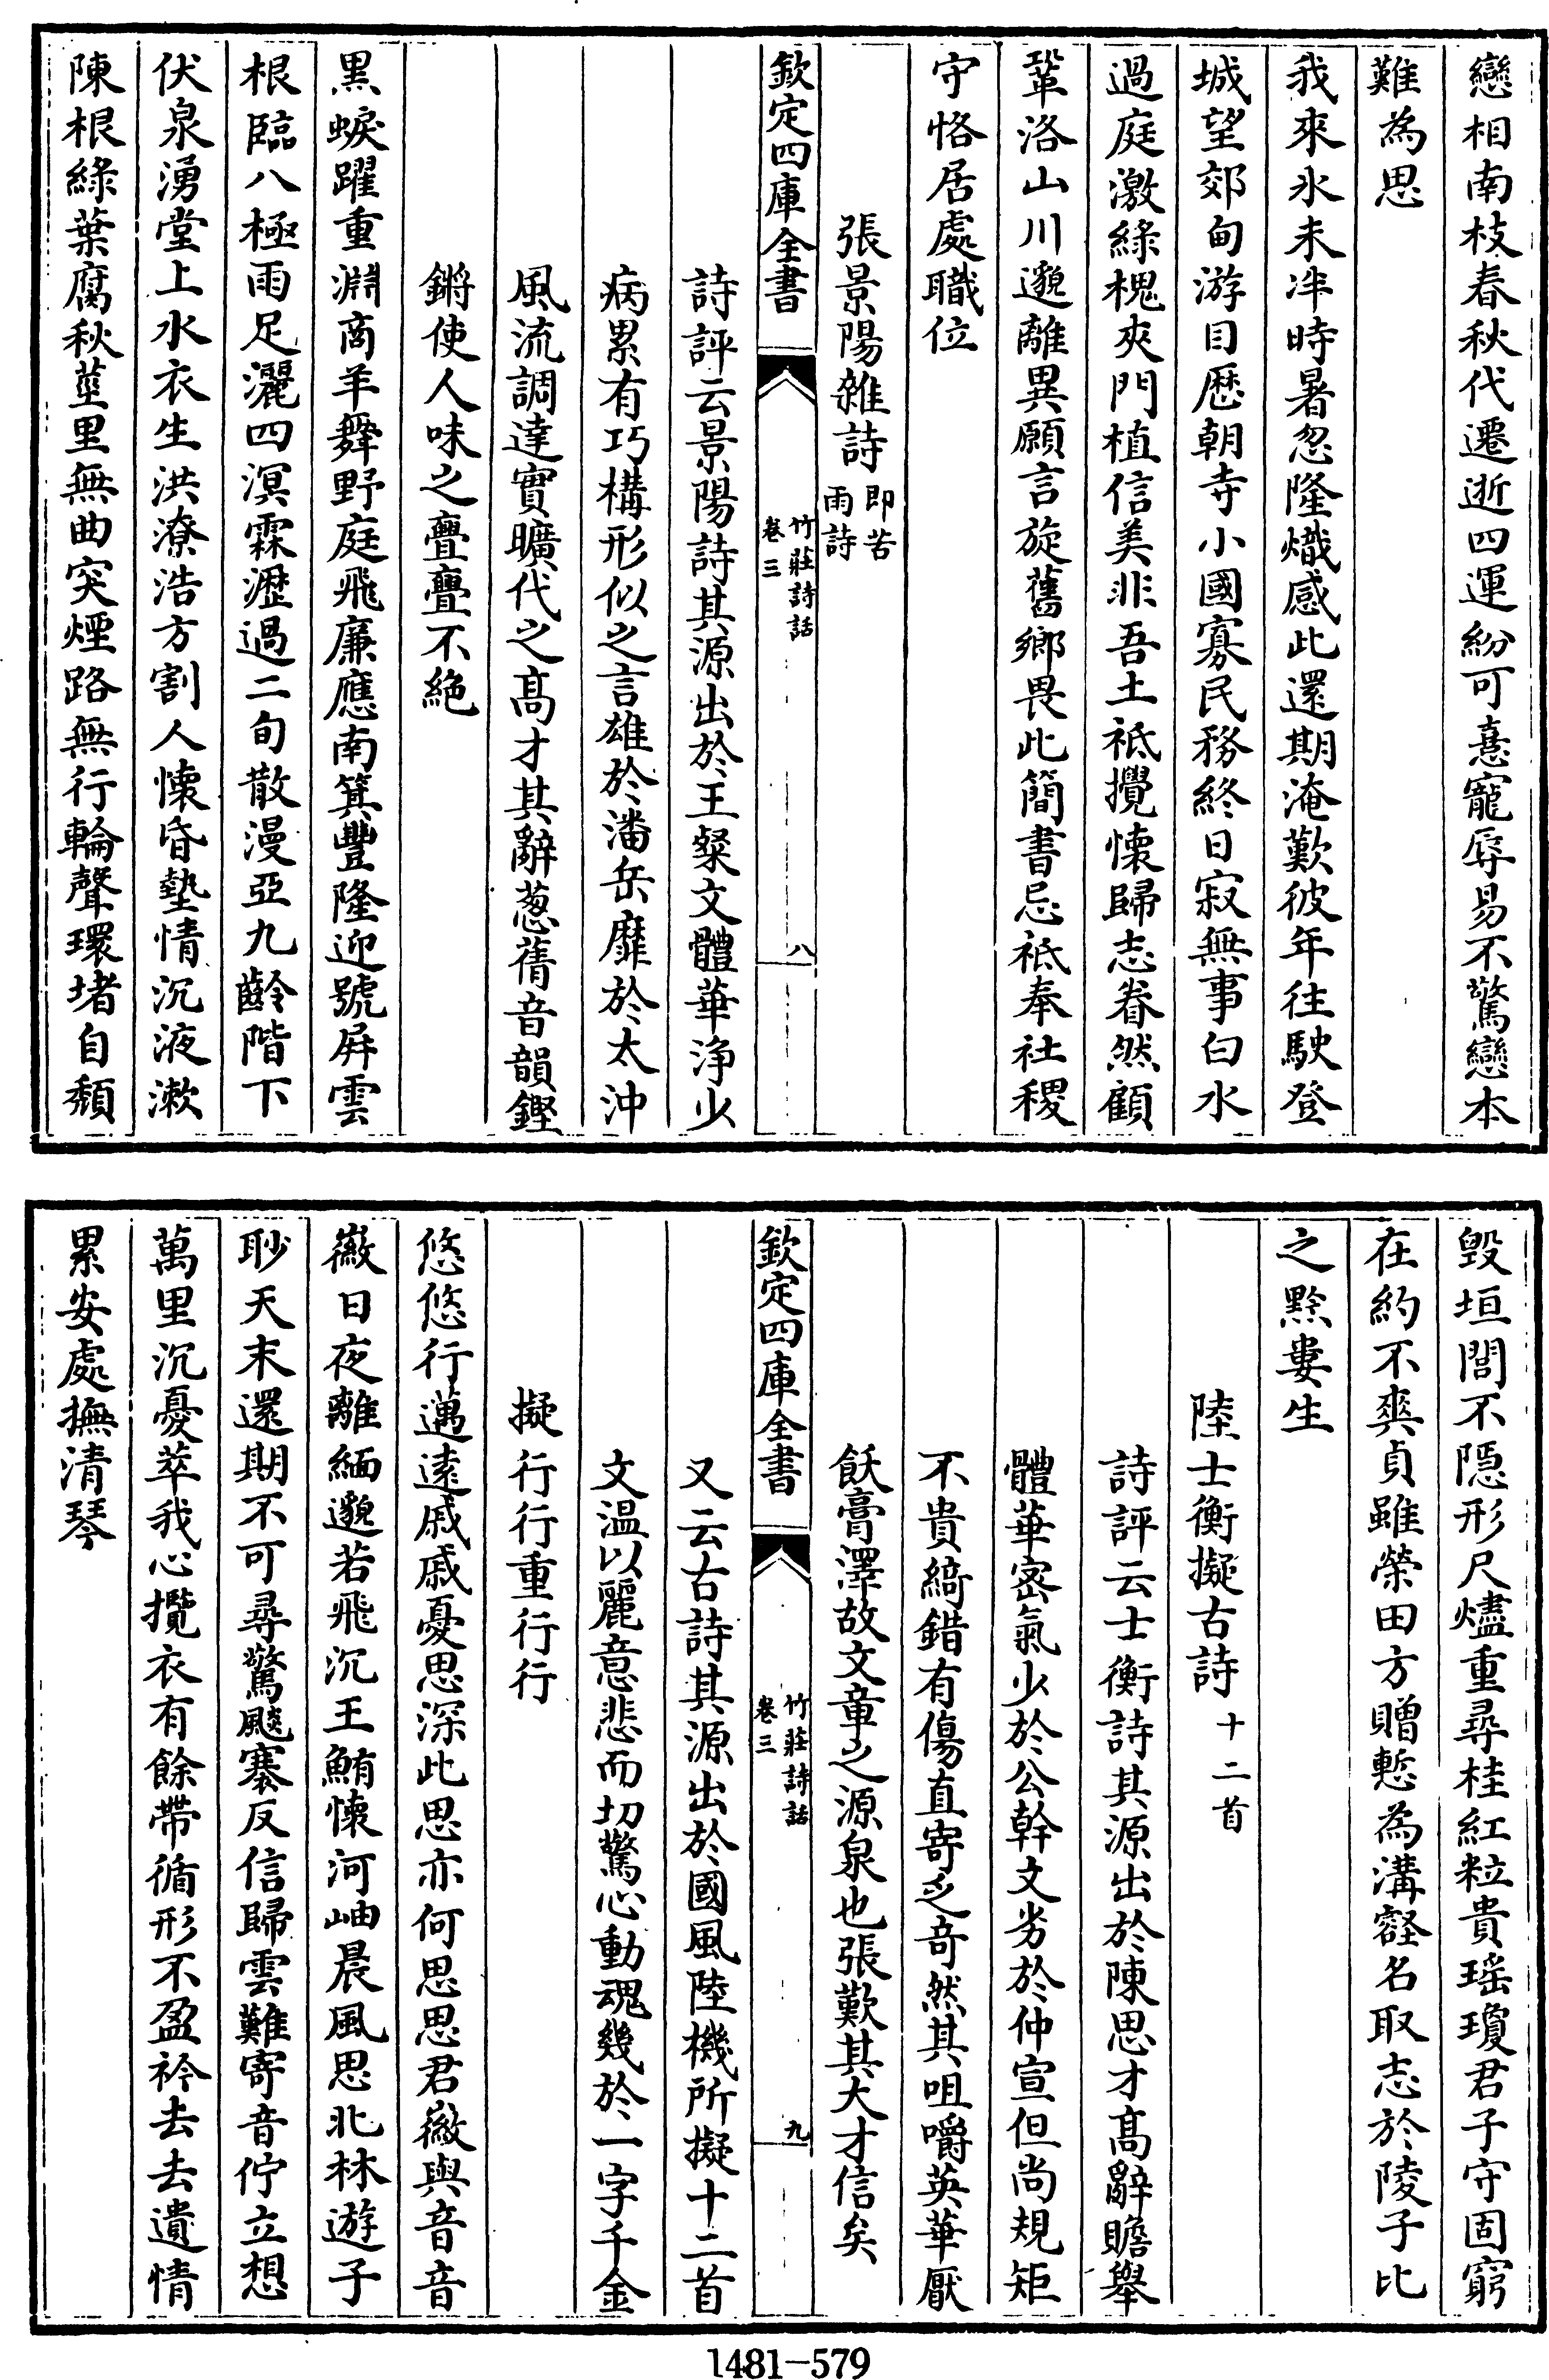 戀相南枝春秋代遷逝四運紛可憙寵辱易不驚戀本
難為思
我來氷未泮時暑忽隆熾感此還期淹歎彼年往駛登
城望郊甸游目歴朝寺小國寡民務終日寂無事白水
過庭激綠槐夾門植信美非吾土祗攪懷歸志眷然顧
鞏洛山川邈離異願言旋舊鄉畏此簡書忌祗奉社稷
守恪居處職位
張景陽雜詩即苦雨詩
欽定四庫全書
竹莊詩話
卷三
八
詩評云景陽詩其源出於王粲文體華浄少
病累有巧構形似之言雄於潘岳靡於太沖
風流調達實曠代之髙才其辭葱蒨音韻鏗
鏘使人味之亹亹不絶
黒蜧躍重淵商羊舞野庭飛廉應南箕豐隆迎號屛雲
根臨八極雨足灑四溟霖瀝過二旬散漫亞九齡階下
伏泉湧堂上水衣生洪潦浩方割人懷昏墊情沉液漱
陳根綠葉腐秋莖里無曲突煙路無行輪聲環堵自頽
毁垣閭不隠形尺燼重尋桂紅粒貴瑶瓊君子守固窮
在約不爽貞雖榮田方贈慙為溝壑名取志於陵子比
之黔婁生
陸士衡擬古詩十二首
詩評云士衡詩其源出於陳思才髙辭贍舉
體華宻氣少於公幹文劣於仲宣但尚規矩
不貴綺錯有傷直寄之竒然其咀嚼英華厭
飫膏澤故文章之源泉也張歎其大才信矣
欽定四庫全書
竹莊詩話
卷三
九
又云古詩其源出於國風陸機所擬十二首
文温以麗意悲而切驚心動魂幾於一字千金
擬行行重行行
悠悠行邁逺戚戚憂思深此思亦何思思君徽與音音
徽日夜離緬邈若飛沉王鮪懷河岫晨風思北林遊子
眇天末還期不可尋驚飈褰反信歸雲難寄音佇立想
萬里沉憂萃我心攬衣有餘帶循形不盈衿去去遺情
累安處撫清琴
1481-579